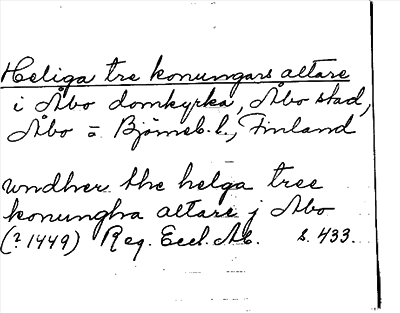 Heliga tre konungars altare
i Åbo domkyrka, Åbo stad,
Åbo o Björneb. l., Finland
undher the helga tree
konungha altare j Abo
(? 1449) Reg. Eccl. Ab. s. 433.